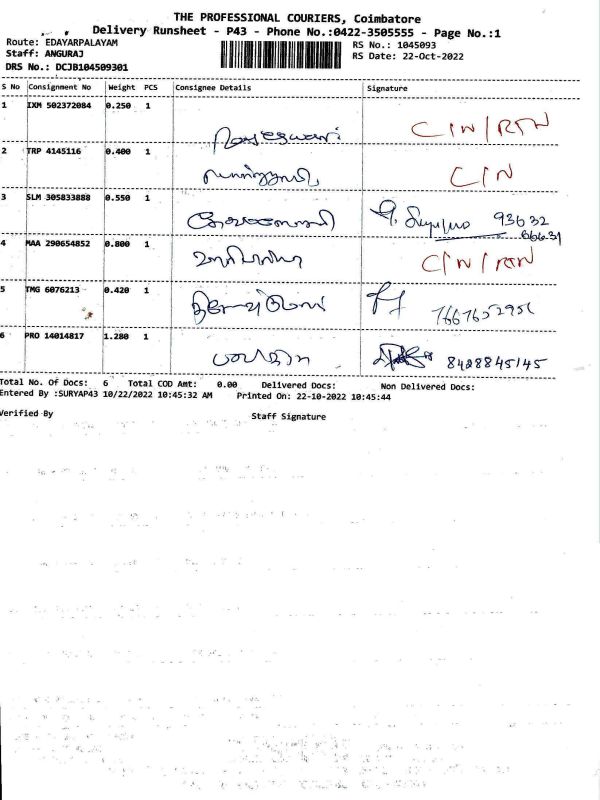 THE PROFESSIONAL COURIERS, Coimbatore
Delivery Runsheet - P43 - Phone No.:0422-3505555 - Page No.:1
Route: EDAYARPALAYAM
RS No.: 1045093
Staff: ANGURAJ
RS Date: 22-Oct-2022
DRS No.: DCJB104509301
S No Consignment No Weight PCS Consignee Details Signature
1 IXM 502372084 0.250 1
C/N/RTN
2 TRP 4145116 0.400 1
C/N
3 SLM 305833888 0.550 1
93632
66631
4 MAA 290654852 0.800 1
C/N/RTN
5 TMG 6076213 0.420 1
6 PRO 14014817 1.280 1
8428845145
Total No. Of Docs: 6 Total COD Amt: 0.00 Delivered Docs: Non Delivered Docs:
Entered By :SURYAP43 10/22/2022 10:45:32 AM Printed On: 22-10-2022 10:45:44
Verified By
Staff Signature